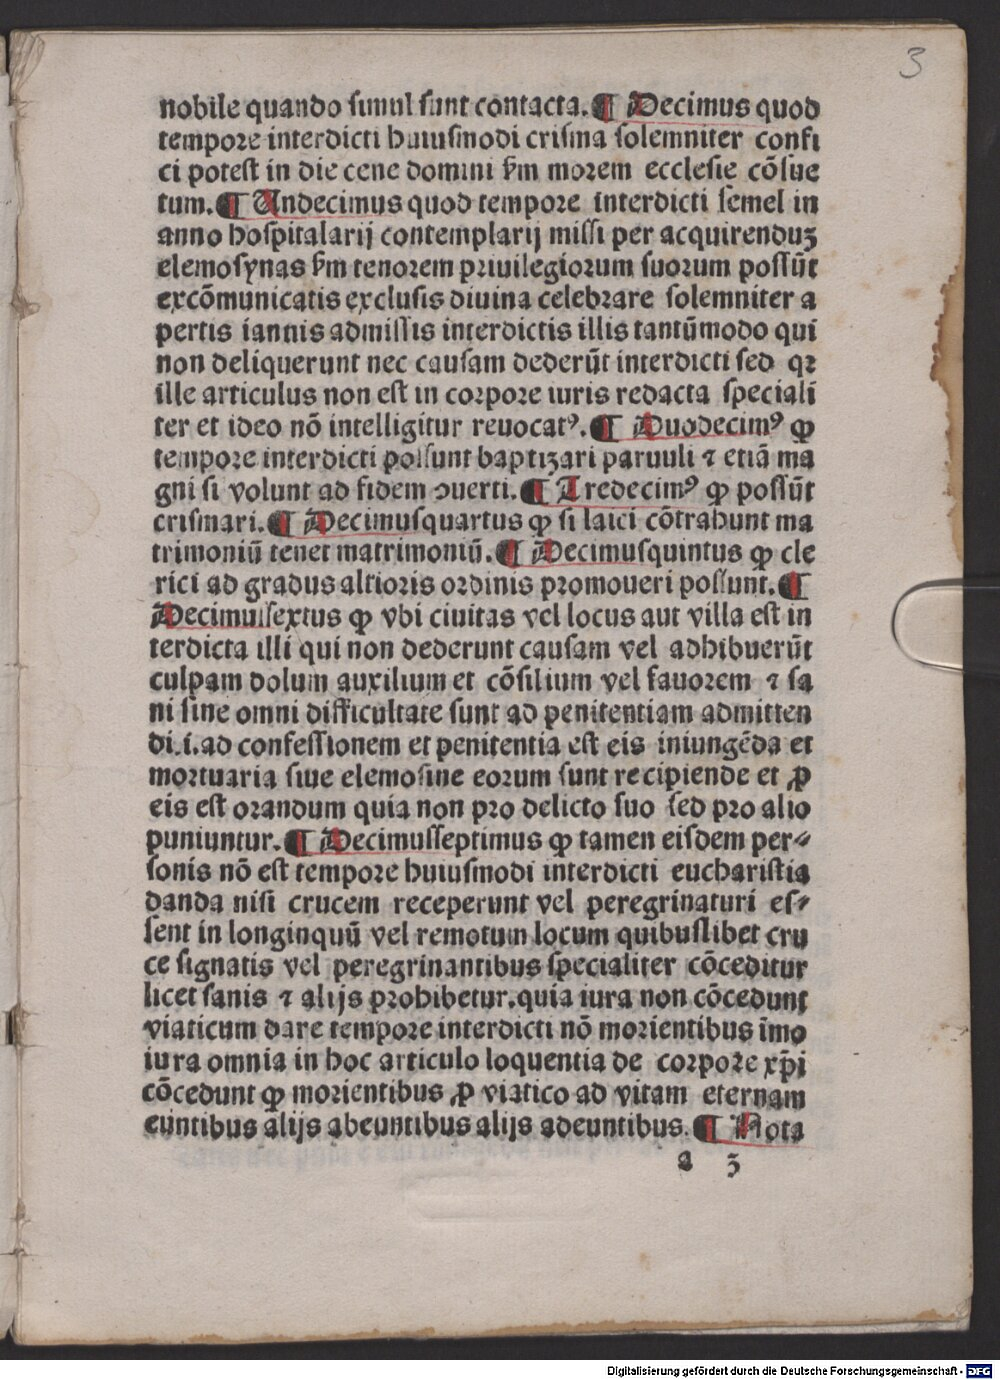 3
nobile quando simul sunt contacta.¶ Decimus quod
tempore interdicti huiusmodi crisma solemniter confi
ci potest in die cene domini ẜm morem ecclesie cōsue
tum.¶ Undecimus quod tempore interdicti semel in
anno hospitalarij contemplarij missi per acquirenduꝫ
elemosynas ẜm tenorem priuilegiorum suorum possūt
excōmunicatis exclusis diuina celebrare solemniter a
pertis iannis admissis interdictis illis tantūmodo qui
non deliquerunt nec causam dederūt interdicti sed qꝛ
ille articulus non est in corpore iuris redacta speciali
ter et ideo nō intelligitur reuocatꝰ.¶ Duodecimꝰ ꝙ
tempore interdicti possunt baptizari paruuli ⁊ etiā ma
gni si volunt ad fidem ↄuerti.¶ Tredecimꝰ ꝙ possūt
crismari.¶ Decimusquartus ꝙ si laici cōtrahunt ma
trimoniū tenet matrimoniū.¶ Decimusquintus ꝙ cle
rici ad gradus altioris ordinis promoueri possunt.¶
Decimussextus ꝙ vbi ciuitas vel locus aut villa est in
terdicta illi qui non dederunt causam vel adhibuerūt
culpam dolum auxilium et cōsilium vel fauorem ⁊ sa
ni sine omni difficultate sunt ad penitentiam admitten
di.i.ad confessionem et penitentia est eis iniungēda et
mortuaria siue elemosine eorum sunt recipiende et ꝓ
eis est orandum quia non pro delicto suo sed pro alio
puniuntur.¶ Decimusseptimus ꝙ tamen eisdem per⸗
sonis nō est tempore huiusmodi interdicti eucharistia
danda nisi crucem receperunt vel peregrinaturi es⸗
sent in longinquū vel remotum locum quibuslibet cru
ce signatis vel peregrinantibus specialiter cōceditur
licet sanis ⁊ alijs prohibetur.quia iura non cōcedunt
viaticum dare tempore interdicti nō morientibus īmo
iura omnia in hoc articulo loquentia de corpore xp̄i
cōcedunt ꝙ morientibus ꝓ viatico ad vitam eternam
euntibus alijs abeuntibus alijs adeuntibus.¶ Nota
a 3
Digitalisierung gefördert durch die Deutsche Forschungsgemeinschaft - DFG